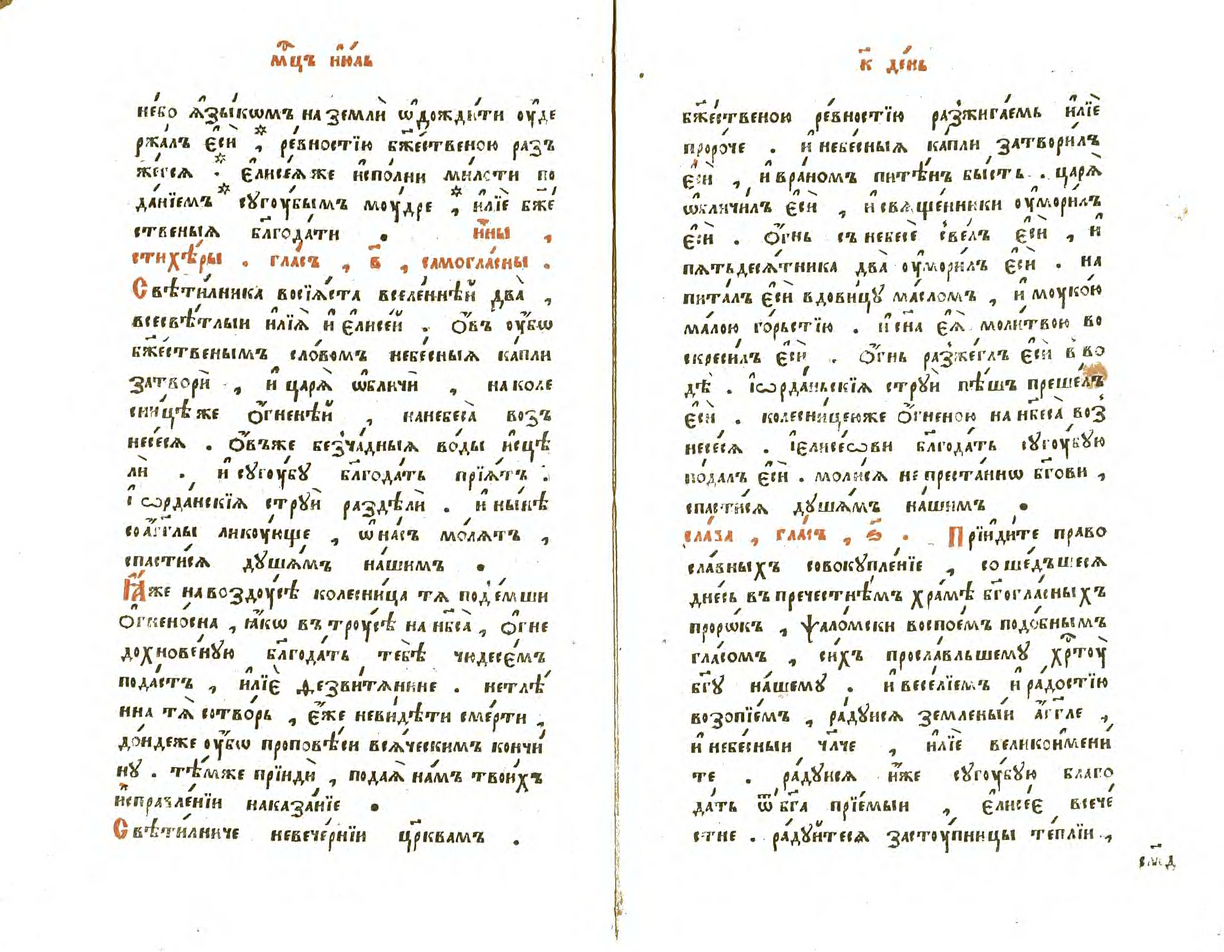 мⷭ҇цъ і҆ю́ль
не́бо ꙗ҆зы́кѡмъ на землѝ ѡ҆дожди́ти оу҆де
ржа́лъ є҆сѝ * , ре́вностїю бж҃е́ственою разъ
же́гсѧ * . є҆лисе́ѧ же и҆спо́лни ми́лости по
да́нїемъ * сꙋгоу́бымъ моу́дре * , и҆лїѐ бж҃е
ственыѧ бл҃года́ти . и҆́ны ,
стихѣ́ры . гла́съ , в҃ , самогла́сны .
Свѣти́лника восїѧ́ста вселе́ннѣй два̀ ,
всесвѣ́тлыи и҆лїѧ̀ и҆ є҆лисе́й . Ѻ҆́въ оу҆́бѡ
бж҃е́ственымъ сло́вомъ небе́сныѧ ка́пли
затворѝ , и҆ царѧ̀ ѡ҆бличѝ , на коле
сни́цѣ же ѻ҆́гненѣй , на небеса̀ возъ
несе́сѧ . Ѻ҆́въ же безча́дныѧ во́ды и҆сцѣ
лѝ . и҆ сꙋгоу́бꙋ бл҃года́ть прїѧ́тъ .
і҆ѻрда́нскїѧ стрꙋѝ раздѣлѝ . и҆ ны́нѣ
со а҆́гг҃лы лико́ꙋюще , ѡ҆ на́съ мо́лѧтъ ,
спасти́сѧ дꙋша́мъ на́шимъ .
Ꙗ҆́же на воздоу́сѣ колесни́ца тѧ̀ под̾е́мши
ѻ҆гнено́сна , ꙗ҆́кѡ въ троу́сѣ на нб҃са̀ , ѻ҆гне
дохнове́нꙋю бл҃года́ть тебѣ̀ чюдесе́мъ
пода́стъ , и҆лїѐ ѳезвитѧ́нине . нетлѣ́
нна тѧ̀ сотво́рь , є҆́же неви́дѣти сме́рти ,
до́ндеже оу҆́бѡ проповѣ́си всѧ́ческимъ кончи́
нꙋ . тѣ́мже прїидѝ , пода́ѧ на́мъ твои́хъ
и҆справле́нїи наказа́нїе .
Свѣти́лниче невече́рнїи цр҃квамъ .
к҃ де́нь
бж҃е́ственою ре́вностїю разжига́емь и҆лїѐ
проро́че . и҆ небе́сныѧ ка́пли затвори́лъ
є҆сѝ , и҆ вра́номъ пита́нъ бы́сть . царѧ̀
ѡ҆бличи́лъ є҆сѝ , и҆ свѧще́нники оу҆мори́лъ
є҆сѝ . Ѻ҆́гнь съ небесѐ све́лъ є҆сѝ , и҆
пѧтьдесѧ́тника два̀ оу҆мори́лъ є҆сѝ . на
пита́лъ є҆сѝ вдови́цꙋ ма́сломъ , и҆ моуко́ю
ма́лою го́рьстїю . и҆ сн҃а є҆ѧ̀ моли́твою во
скреси́лъ є҆сѝ . Ѻ҆́гнь разже́глъ є҆сѝ в во
дѣ̀ . і҆ѡрда́ньскїѧ стрꙋѝ пѣ́шъ преше́лъ
є҆сѝ . колесни́цеюже ѻ҆́гненою на нб҃са̀ воз
несе́сѧ . і҆ є҆лисе́ѡви бл҃года́ть сꙋгоу́бꙋю
пода́лъ є҆сѝ . моли́сѧ непреста́ннѡ бг҃ови ,
спасти́сѧ дꙋша́мъ на́шимъ .
сла́ва , гла́съ , ѕ҃ . Прїиди́те право
сла́вныхъ совокꙋпле́нїе , соше́дъшесѧ
дне́сь въ пречестнѣ́мъ хра́мѣ бг҃огла́сныхъ
проро́къ , ѱало́мски воспое́мъ подо́бнымъ
гла́сомъ , си́хъ просла́вльшемꙋ хрⷭ҇тоу̀
бг҃ꙋ на́шемꙋ . и҆ весе́лїемъ и҆ ра́достїю
возопїе́мъ , ра́дꙋисѧ земле́ныи а҆́гг҃ле ,
и҆ небе́сныи чл҃че , и҆лїѐ великоимени́
те . ра́дꙋисѧ и҆́же сꙋгоу́бꙋю благо
да́ть ѿ бг҃а прїе́мыи , є҆лисе́е всече́
стне . ра́дꙋйтесѧ застоу́пницы те́плїи ,
смд